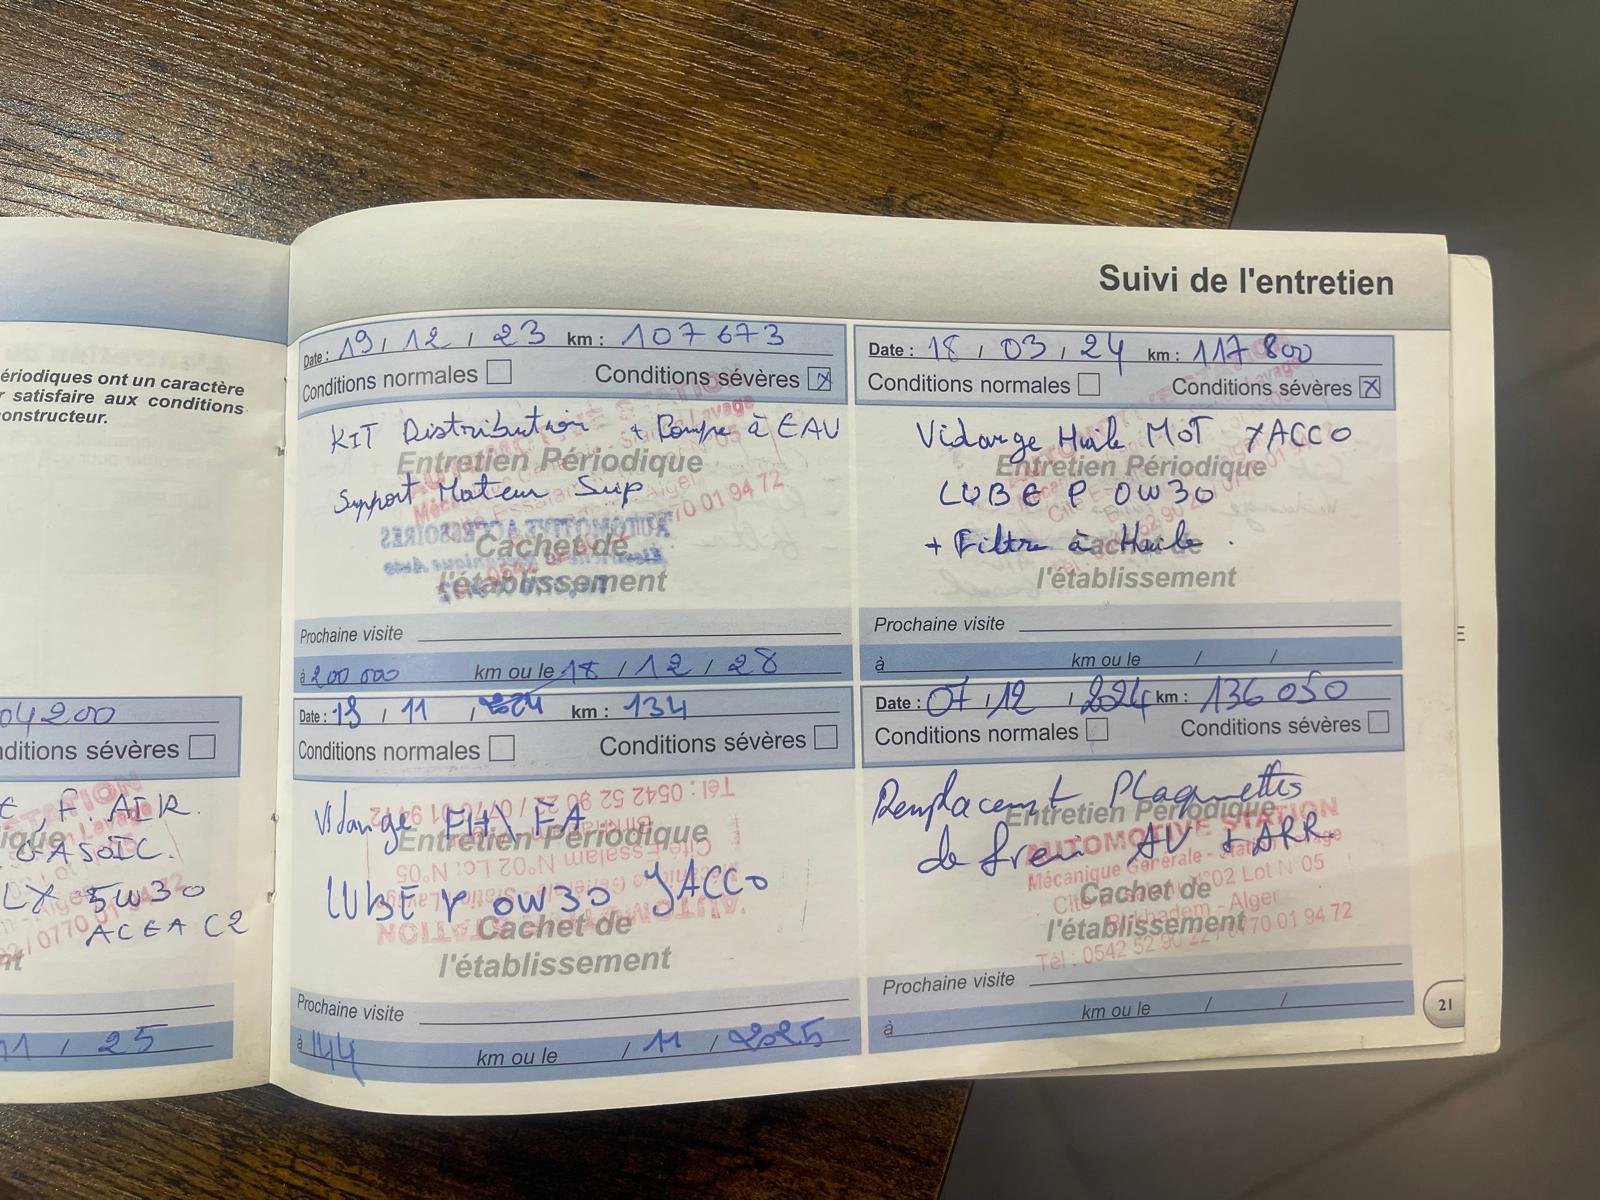 Suivi de l'entretien
ériodiques ont un caractère
r satisfaire aux conditions
constructeur.
04200
nditions sévères
F. AIR.
GASOIL.
5W30
ACEA C2
11 / 25
Date : 19 / 12 / 23 km : 107673
Conditions normales Conditions sévères X
KIT Distribution + Pompe à EAU
Entretien Périodique
Support Moteur Sup
Cachet de
l'établissement
AUTOMOTIVE ACCESSOIRES
Prochaine visite
à 200 000 km ou le 18 / 12 / 28
Date : 18 / 03 / 24 km : 117 800
Conditions normales Conditions sévères X
Vidange Huile MOT YACCO
Entretien Périodique
LUBE P 0W30
+ Filtre à Huile.
Cachet de
l'établissement
Prochaine visite
à km ou le / /
Date : / 11 / 2024 km : 134
Conditions normales Conditions sévères
Vidange FH \ FA
Entretien Périodique
0W30 YACCO
Cachet de
l'établissement
AUTOMOTIVE STATION
Cité Essalam N°02 Lot N°05
Tél : 0542 52 90 22 / 0770 01 94 72
Prochaine visite
à 144 km ou le / 11 / 2025
Date : 07 / 12 / 2024 km : 136 050
Conditions normales Conditions sévères
Remplacemt Plaquettes
Entretien Périodique
de frein AV + ARR.
AUTOMOTIVE STATION
Mécanique Générale - Station Lavage
Cachet de
Birkhadem - Alger
l'établissement
Tél : 0542 52 90 22 / 0770 01 94 72
Prochaine visite
à km ou le / /
21